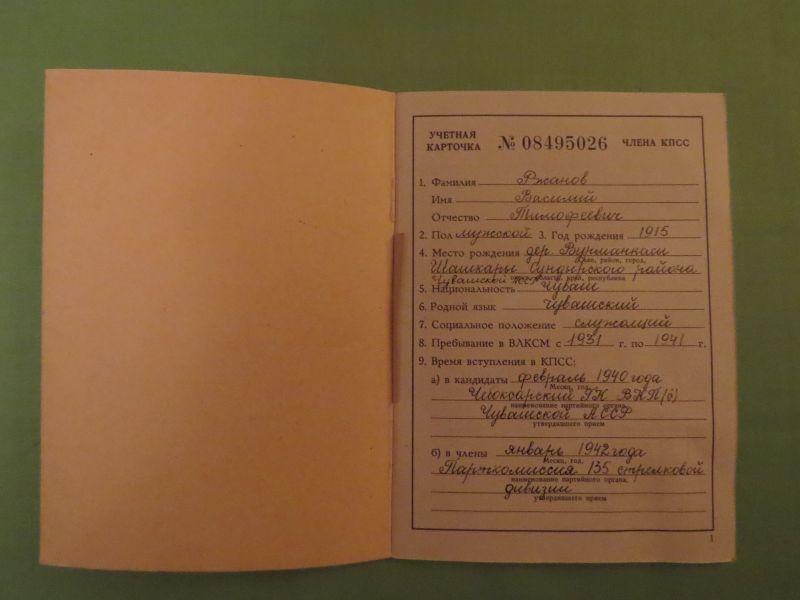 УЧЕТНАЯ КАРТОЧКА № 08495026 ЧЛЕНА КПСС
1. Фамилия Ржанов
Имя Василий
Отчество Тимофеевич
2. Пол мужской 3. Год рождения 1915
4. Место рождения дер. Вурманкасы
Село, район, город,
Шашкары Сундырского района
область, край, республика
Чувашской АССР
5. Национальность Чуваш
6. Родной язык Чувашский
7. Социальное положение служащий
8. Пребывание в ВЛКСМ с 1931 г. по 1941 г.
9. Время вступления в КПСС:
а) в кандидаты февраль 1940 года
Месяц, год,
Чебоксарский ГК ВКП(б)
наименование партийного органа,
Чувашской АССР
утвердившего прием
б) в члены январь 1942 года
Месяц, год,
Парткомиссия 135 стрелковой
наименование партийного органа,
дивизии
утвердившего прием
1